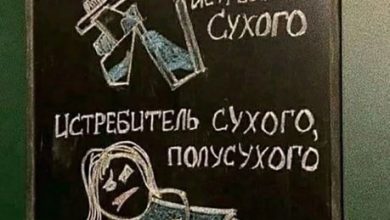 ИСТРЕБИТЕЛЬ
СУХОГО
ИСТРЕБИТЕЛЬ СУХОГО,
ПОЛУСУХОГО